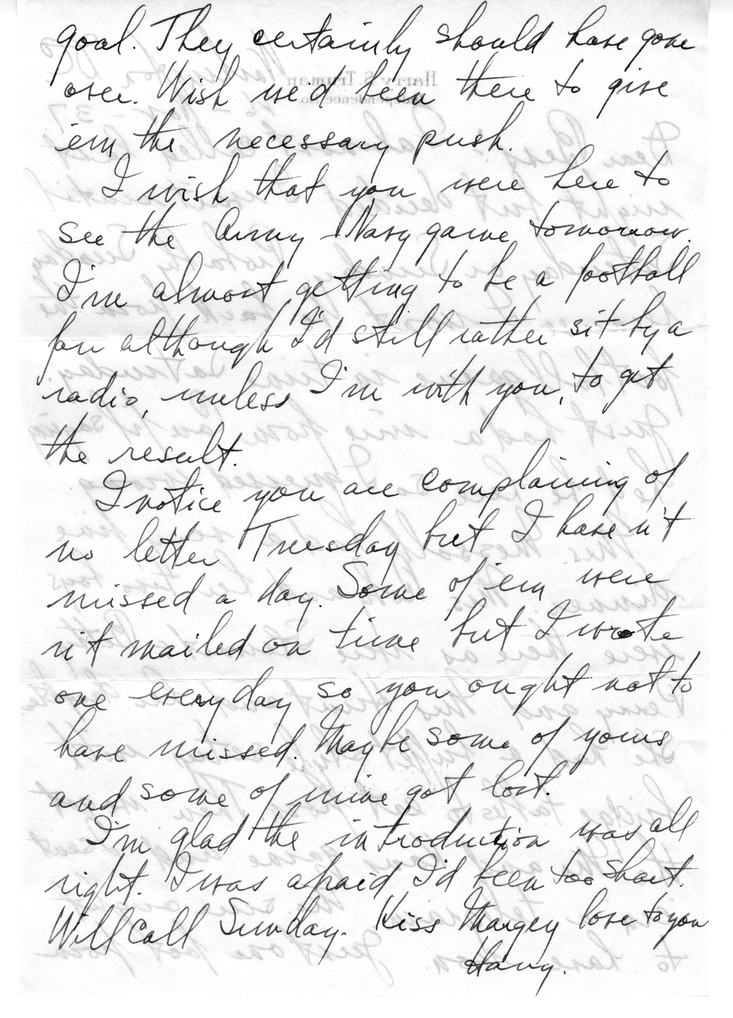 goal. They certainly should have gone
over. Wish we'd been there to give
'em the necessary push.
I wish that you were here to
see the Army Navy game tomorrow.
I'm almost getting to be a football
fan although I'd still rather sit by a
radio, unless I'm with you, to get
the result.
I notice you are complaining of
no letter Tuesday but I haven't
missed a day. Some of 'em were
n't mailed on time but I wrote
one everyday so you ought not to
have missed. Maybe some of yours
and some of mine got lost.
I'm glad the introduction was all
right. I was afraid I'd been too short.
Will call Sunday. Kiss Margey love to you
Harry.